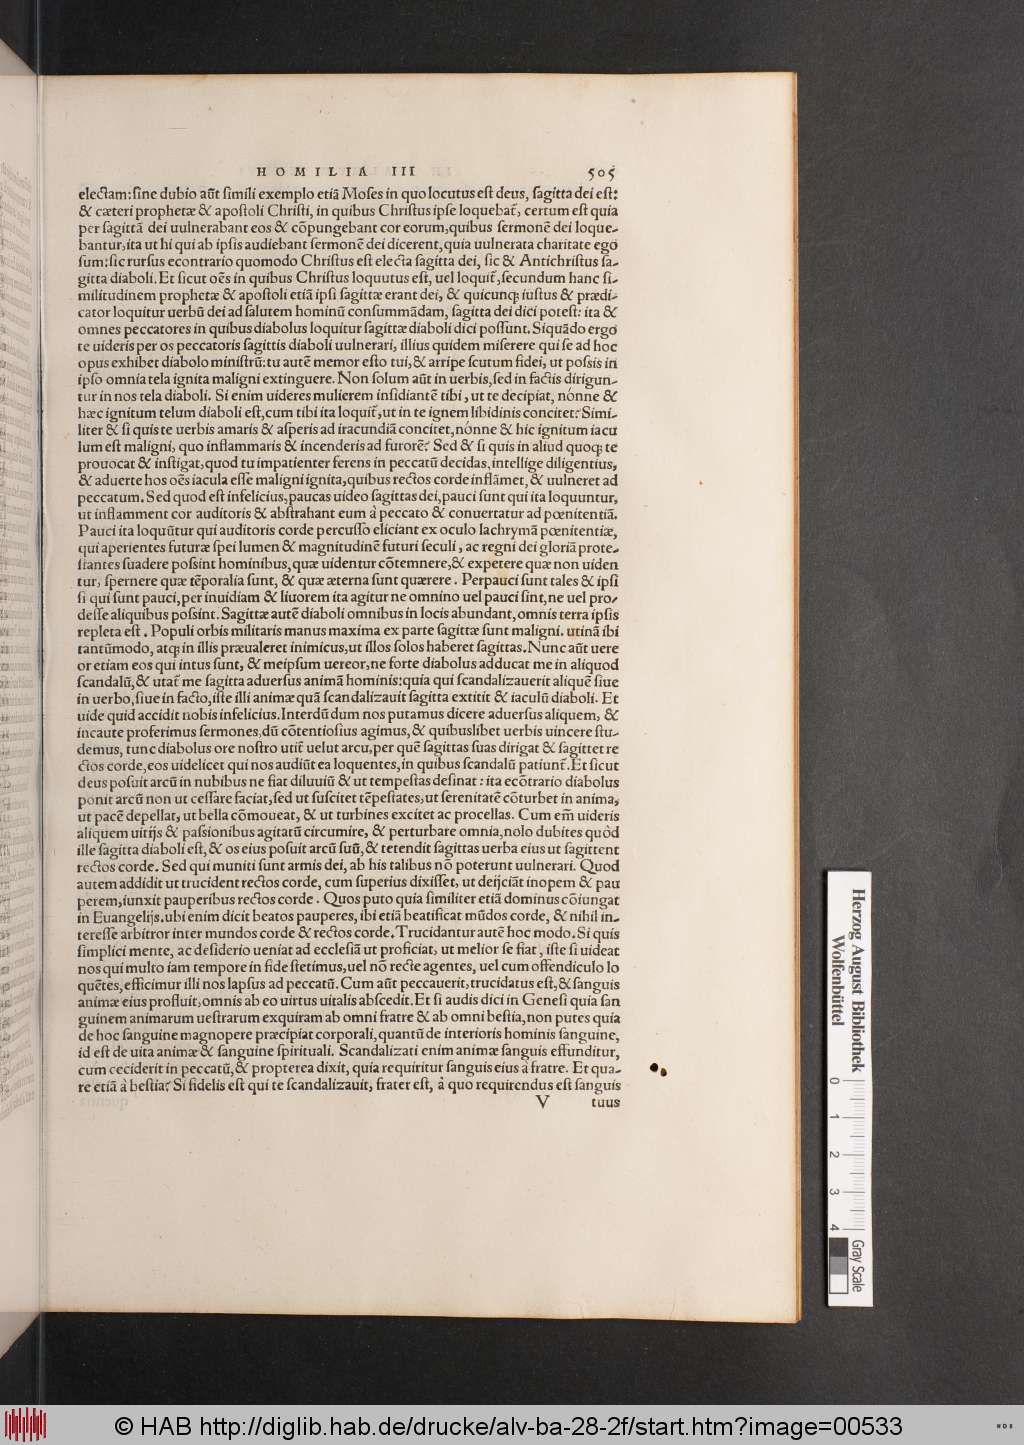 HOMILIA III 505
electam: sine dubio aũt simili exemplo etiã Moses in quo locutus est deus, sagitta dei est:
& cæteri prophetæ & apostoli Christi, in quibus Christus ipse loquebat᷑, certum est quia
per sagittã dei uulnerabant eos & cõpungebant cor eorum, quibus sermonẽ dei loque-
bantur, ita ut hi qui ab ipsis audiebant sermonẽ dei dicerent, quia uulnerata charitate ego
sum: sic rursus econtrario quomodo Christus est electa sagitta dei, sic & Antichristus sa-
gitta diaboli. Et sicut oẽs in quibus Christus loquutus est, uel loquit᷑, secundum hanc si-
militudinem prophetæ & apostoli etiã ipsi sagittæ erant dei, & quicunq; iustus & prædi-
cator loquitur uerbũ dei ad salutem hominũ consummãdam, sagitta dei dici potest: ita &
omnes peccatores in quibus diabolus loquitur sagittæ diaboli dici possunt. Siquãdo ergo
te uideris per os peccatoris sagittis diaboli uulnerari, illius quidem miserere qui se ad hoc
opus exhibet diabolo ministrũ: tu autẽ memor esto tui, & arripe scutum fidei, ut possis in
ipso omnia tela ignita maligni extinguere. Non solum aũt in uerbis, sed in factis dirigun-
tur in nos tela diaboli. Si enim uideres mulierem insidiantẽ tibi, ut te decipiat, nónne &
hæc ignitum telum diaboli est, cum tibi ita loquit᷑, ut in te ignem libidinis concitet? Simi-
liter & si quis te uerbis amaris & asperis ad iracundiã concitet, nónne & hic ignitum iacu
lum est maligni, quo inflammaris & incenderis ad furorẽ? Sed & si quis in aliud quoq; te
prouocat & instigat, quod tu impatienter ferens in peccatũ decidas, intellige diligentius,
& aduerte hos oẽs iacula esse maligni ignita, quibus rectos corde inflãmet, & uulneret ad
peccatum. Sed quod est infelicius, paucas uideo sagittas dei, pauci sunt qui ita loquuntur,
ut inflamment cor auditoris & abstrahant eum à peccato & conuertatur ad pœnitentiã.
Pauci ita loquũtur qui auditoris corde percusso eliciant ex oculo lachrymã pœnitentiæ,
qui aperientes futuræ spei lumen & magnitudinẽ futuri seculi, ac regni dei gloriã prote-
stantes suadere possint hominibus, quæ uidentur cõtemnere, & expetere quæ non uiden
tur, spernere quæ tẽporalia sunt, & quæ æterna sunt quærere. Perpauci sunt tales & ipsi
si qui sunt pauci, per inuidiam & liuorem ita agitur ne omnino uel pauci sint, ne uel pro-
desse aliquibus possint. Sagittæ autẽ diaboli omnibus in locis abundant, omnis terra ipsis
repleta est. Populi orbis militaris manus maxima ex parte sagittæ sunt maligni. utinã ibi
tantũmodo, atq; in illis præualeret inimicus, ut illos solos haberet sagittas. Nunc aũt uere
or etiam eos qui intus sunt, & meipsum uereor, ne forte diabolus adducat me in aliquod
scandalũ, & utat᷑ me sagitta aduersus animã hominis: quia qui scandalizauerit aliquẽ siue
in uerbo, siue in facto, iste illi animæ quã scandalizauit sagitta extitit & iaculũ diaboli. Et
uide quid accidit nobis infelicius. Interdũ dum nos putamus dicere aduersus aliquem, &
incaute proferimus sermones, dũ cõtentiosius agimus, & quibuslibet uerbis uincere stu-
demus, tunc diabolus ore nostro utit᷑ uelut arcu, per quẽ sagittas suas dirigat & sagittet re
ctos corde, eos uidelicet qui nos audiũt ea loquentes, in quibus scandalũ patiunt᷑. Et sicut
deus posuit arcũ in nubibus ne fiat diluuiũ & ut tempestas desinat: ita ecõtrario diabolus
ponit arcũ non ut cessare faciat, sed ut suscitet tẽpestates, ut serenitatẽ cõturbet in anima,
ut pacẽ depellat, ut bella cõmoueat, & ut turbines excitet ac procellas. Cum em̃ uideris
aliquem uitijs & passionibus agitatũ circumire, & perturbare omnia, nolo dubites quòd
ille sagitta diaboli est, & os eius posuit arcũ suũ, & tetendit sagittas uerba eius ut sagittent
rectos corde. Sed qui muniti sunt armis dei, ab his talibus nõ poterunt uulnerari. Quod
autem addidit ut trucident rectos corde, cum superius dixisset, ut deijciãt inopem & pau
perem, iunxit pauperibus rectos corde. Quos puto quia similiter etiã dominus cõiungat
in Euangelijs. ubi enim dicit beatos pauperes, ibi etiã beatificat mũdos corde, & nihil in-
teresse arbitror inter mundos corde & rectos corde. Trucidantur autẽ hoc modo. Si quis
simplici mente, ac desiderio ueniat ad ecclesiã ut proficiat, ut melior se fiat, iste si uideat
nos qui multo iam tempore in fide stetimus, uel nõ recte agentes, uel cum offendiculo lo
quẽtes, efficimur illi nos lapsus ad peccatũ. Cum aũt peccauerit, trucidatus est, & sanguis
animæ eius profluit, omnis ab eo uirtus uitalis abscedit. Et si audis dici in Genesi quia san
guinem animarum uestrarum exquiram ab omni fratre & ab omni bestia, non putes quia
de hoc sanguine magnopere præcipiat corporali, quantũ de interioris hominis sanguine,
id est de uita animæ & sanguine spirituali. Scandalizati enim animæ sanguis effunditur,
cum ceciderit in peccatũ, & propterea dixit, quia requiritur sanguis eius à fratre. Et qua-
re etiã à bestia? Si fidelis est qui te scandalizauit, frater est, à quo requirendus est sanguis
V tuus
Herzog August Bibliothek
Wolfenbüttel
0 1 2 3 4
Gray Scale
© HAB http://diglib.hab.de/drucke/alv-ba-28-2f/start.htm?image=00533